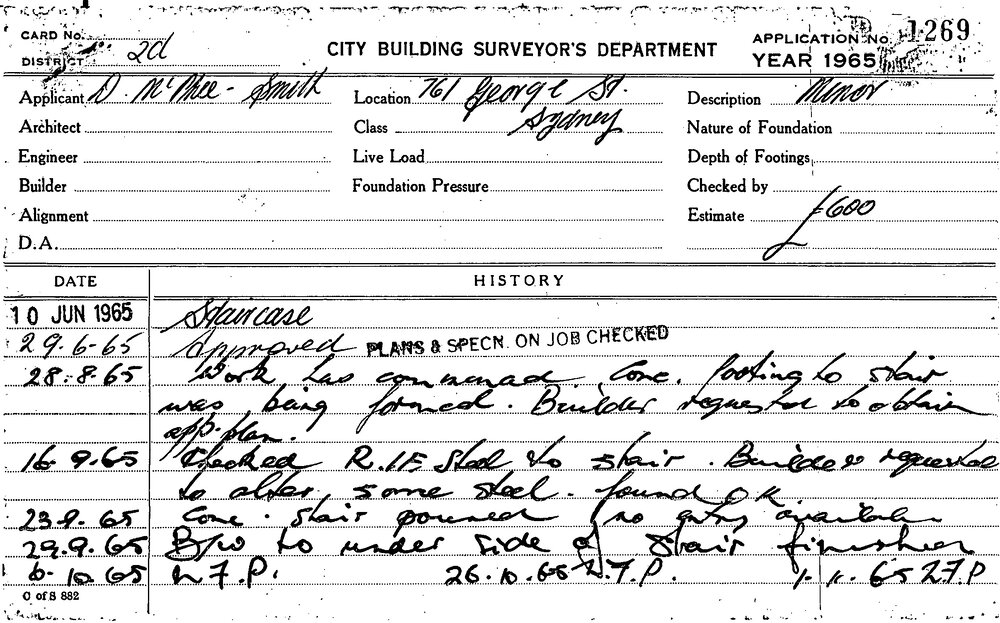 CARD No. CITY BUILDING SURVEYOR'S DEPARTMENT APPLICATION No. 1269
DISTRICT 2d YEAR 1965
Applicant D. McPhee-Smith Location 761 George St. Description Minor
Architect Class Sydney Nature of Foundation
Engineer Live Load Depth of Footings
Builder Foundation Pressure Checked by
Alignment Estimate £600
D.A.
DATE HISTORY
10 JUN 1965 Staircase
29.6.65 Approved PLANS & SPECN. ON JOB CHECKED
28.8.65 Work has commenced. Conc. footing to stair
was being formed. Builder requested to obtain
app. plan.
16.9.65 Checked R.I.F. Steel to stair. Builder requested
to alter some steel. found OK.
23.9.65 Conc. stair poured no entry available
29.9.65 B/w to under side of stair finished
6.10.65 N.F.P. 26.10.65 N.F.P. 1.11.65 N.F.P
C of S 882